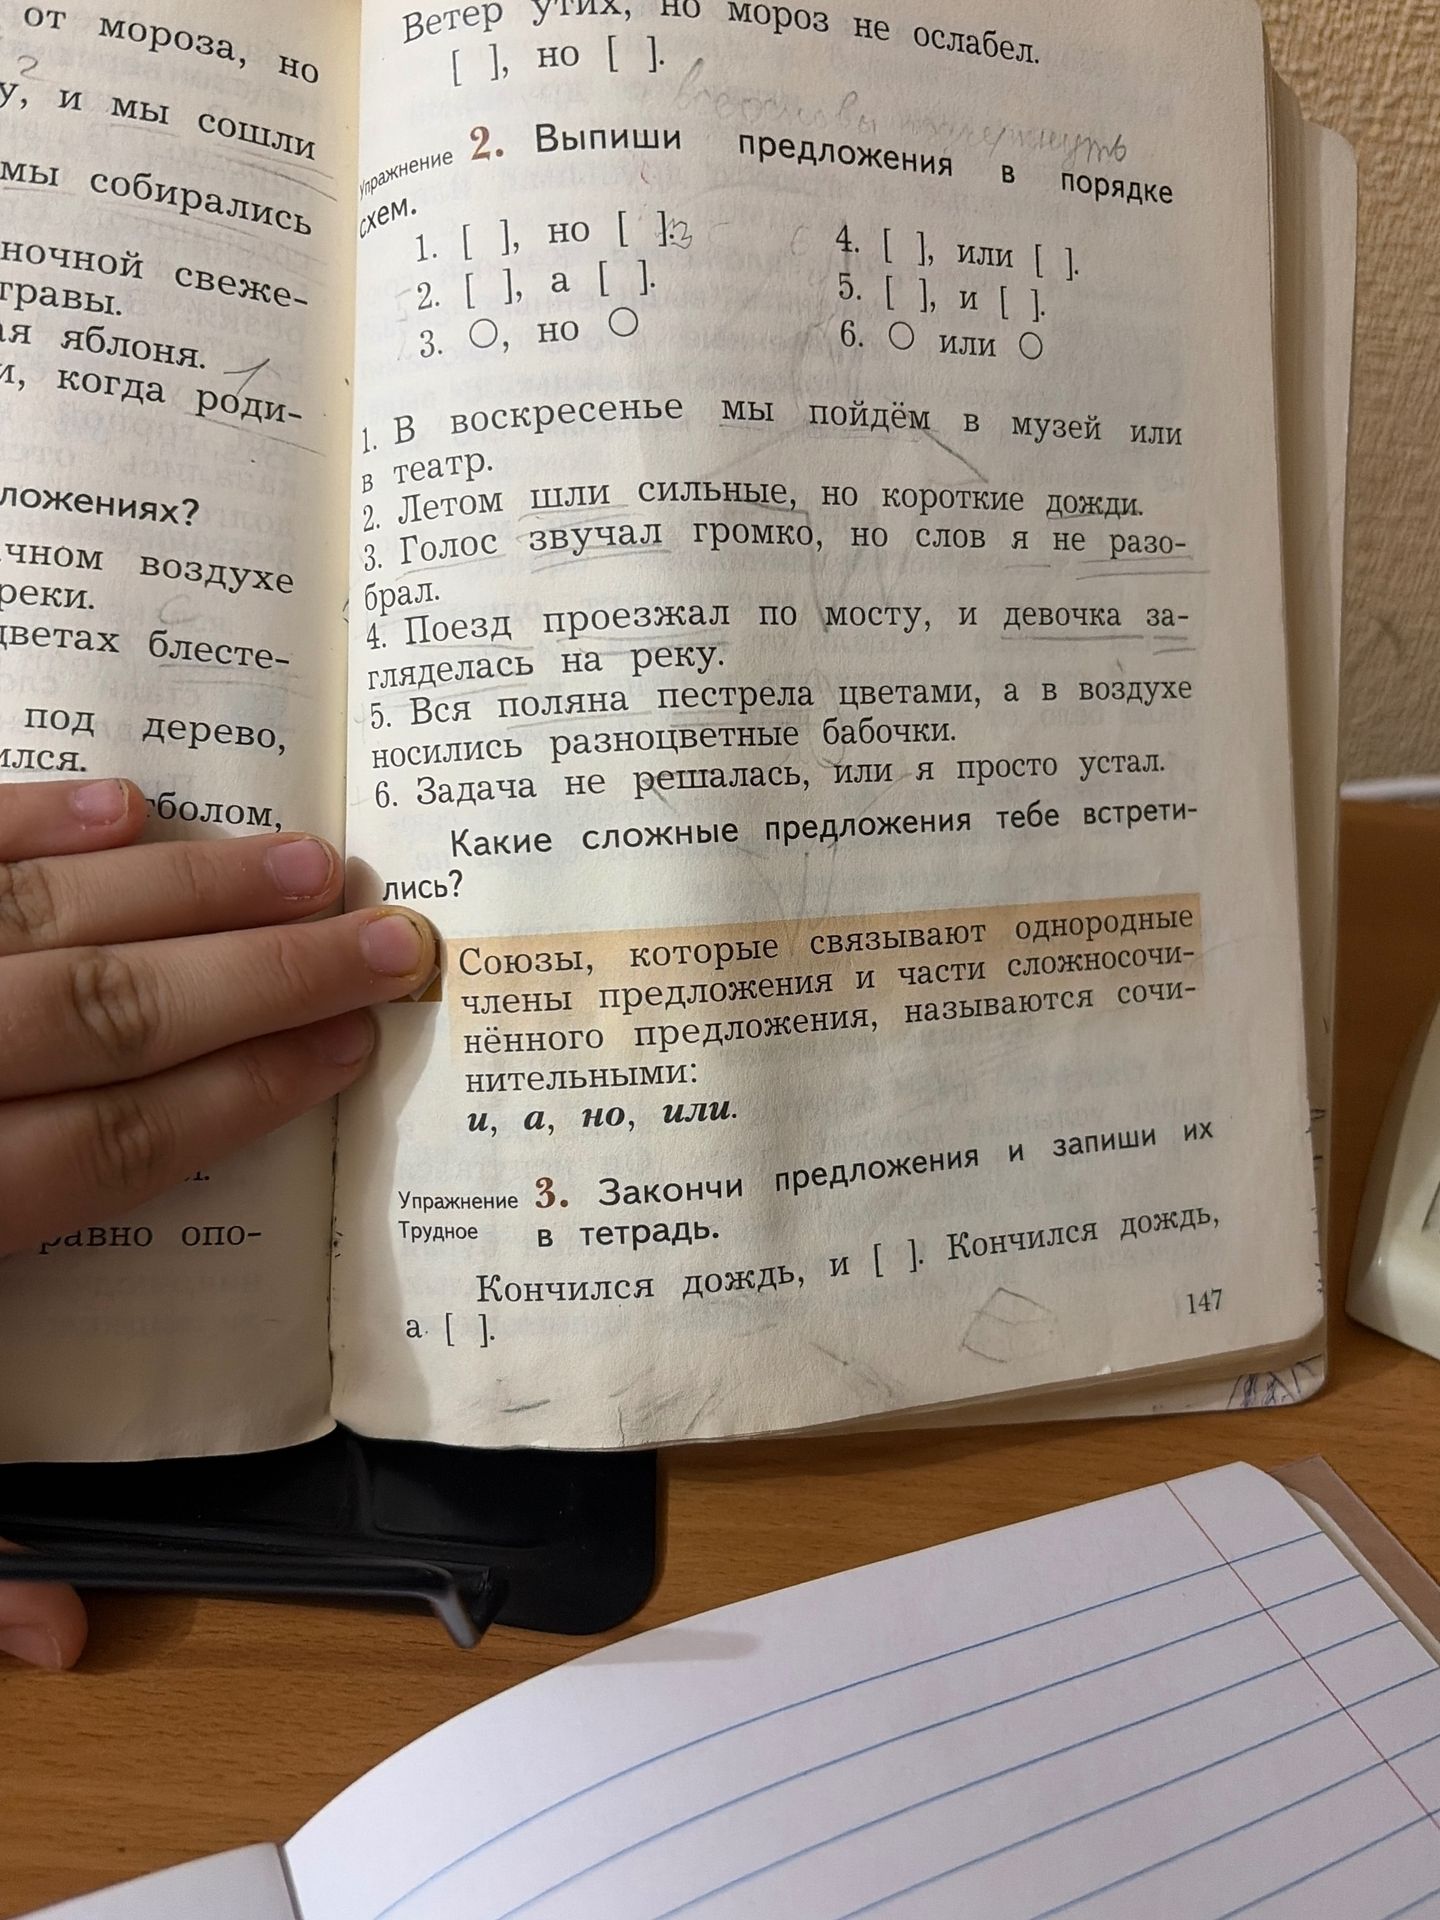 от мороза, но
2
у, и мы сошли
мы собирались
ночной свеже-
травы.
ая яблоня.
и, когда роди-
ложениях?
чном воздухе
реки.
цветах блесте-
под дерево,
ился.
тболом,
равно опо-
Ветер утих, но мороз не ослабел.
[ ], но [ ].
все основы подчеркнуть
Упражнение 2. Выпиши предложения в порядке
схем.
1. [ ], но [ ]. 3
2. [ ], а [ ].
3. ○, но ○
4. [ ], или [ ].
5. [ ], и [ ].
6. ○ или ○
1. В воскресенье мы пойдём в музей или
в театр.
2. Летом шли сильные, но короткие дожди.
3. Голос звучал громко, но слов я не разо-
брал.
4. Поезд проезжал по мосту, и девочка за-
гляделась на реку.
5. Вся поляна пестрела цветами, а в воздухе
носились разноцветные бабочки.
6. Задача не решалась, или я просто устал.
Какие сложные предложения тебе встрети-
лись?
Союзы, которые связывают однородные
члены предложения и части сложносочи-
нённого предложения, называются сочи-
нительными:
и, а, но, или.
Упражнение 3. Закончи предложения и запиши их
Трудное в тетрадь.
Кончился дождь, и [ ]. Кончился дождь,
а [ ].
147